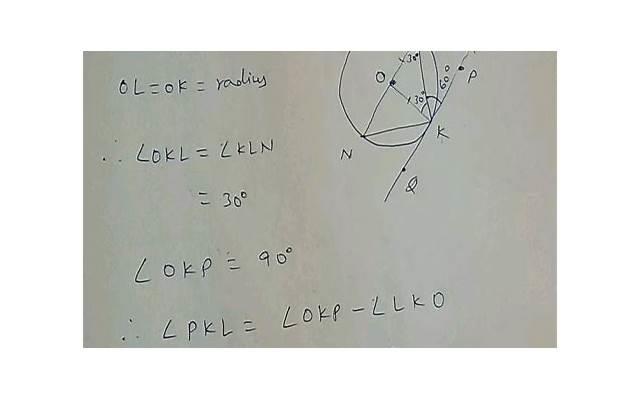 OL = OK = radius
∴ ∠OKL = ∠KLN
= 30°
∠OKP = 90°
∴ ∠PKL = ∠OKP - ∠LKO
30°
O
P
60°
30°
K
N
Q